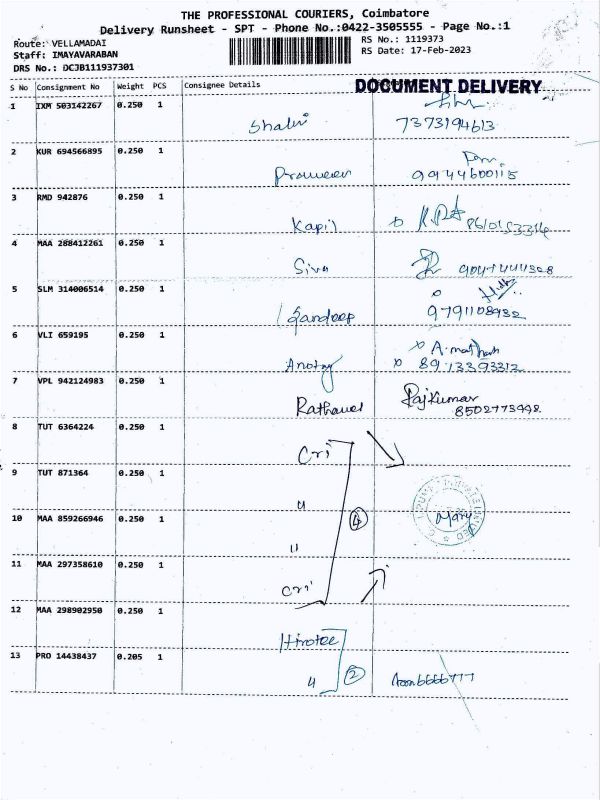 THE PROFESSIONAL COURIERS, Coimbatore
Delivery Runsheet - SPT - Phone No.:0422-3505555 - Page No.:1
Route: VELLAMADAI RS No.: 1119373
Staff: IMAYAVARABAN RS Date: 17-Feb-2023
DRS No.: DCJB111937301
S No Consignment No Weight PCS Consignee Details DOCUMENT DELIVERY
1 IXM 503142267 0.250 1
7373194613
2 KUR 694566895 0.250 1
9944600115
3 RMD 942876 0.250 1
Kapil
4 MAA 288412261 0.250 1
Siva
5 SLM 314006514 0.250 1
9791108932
6 VLI 659195 0.250 1
8913393312
7 VPL 942124983 0.250 1
Rajkumar
8502773998
8 TUT 6364224 0.250 1
Cri
9 TUT 871364 0.250 1
"
10 MAA 859266946 0.250 1 4 Mary
"
11 MAA 297358610 0.250 1
Cri
12 MAA 298902950 0.250 1
13 PRO 14438437 0.205 1
" 2